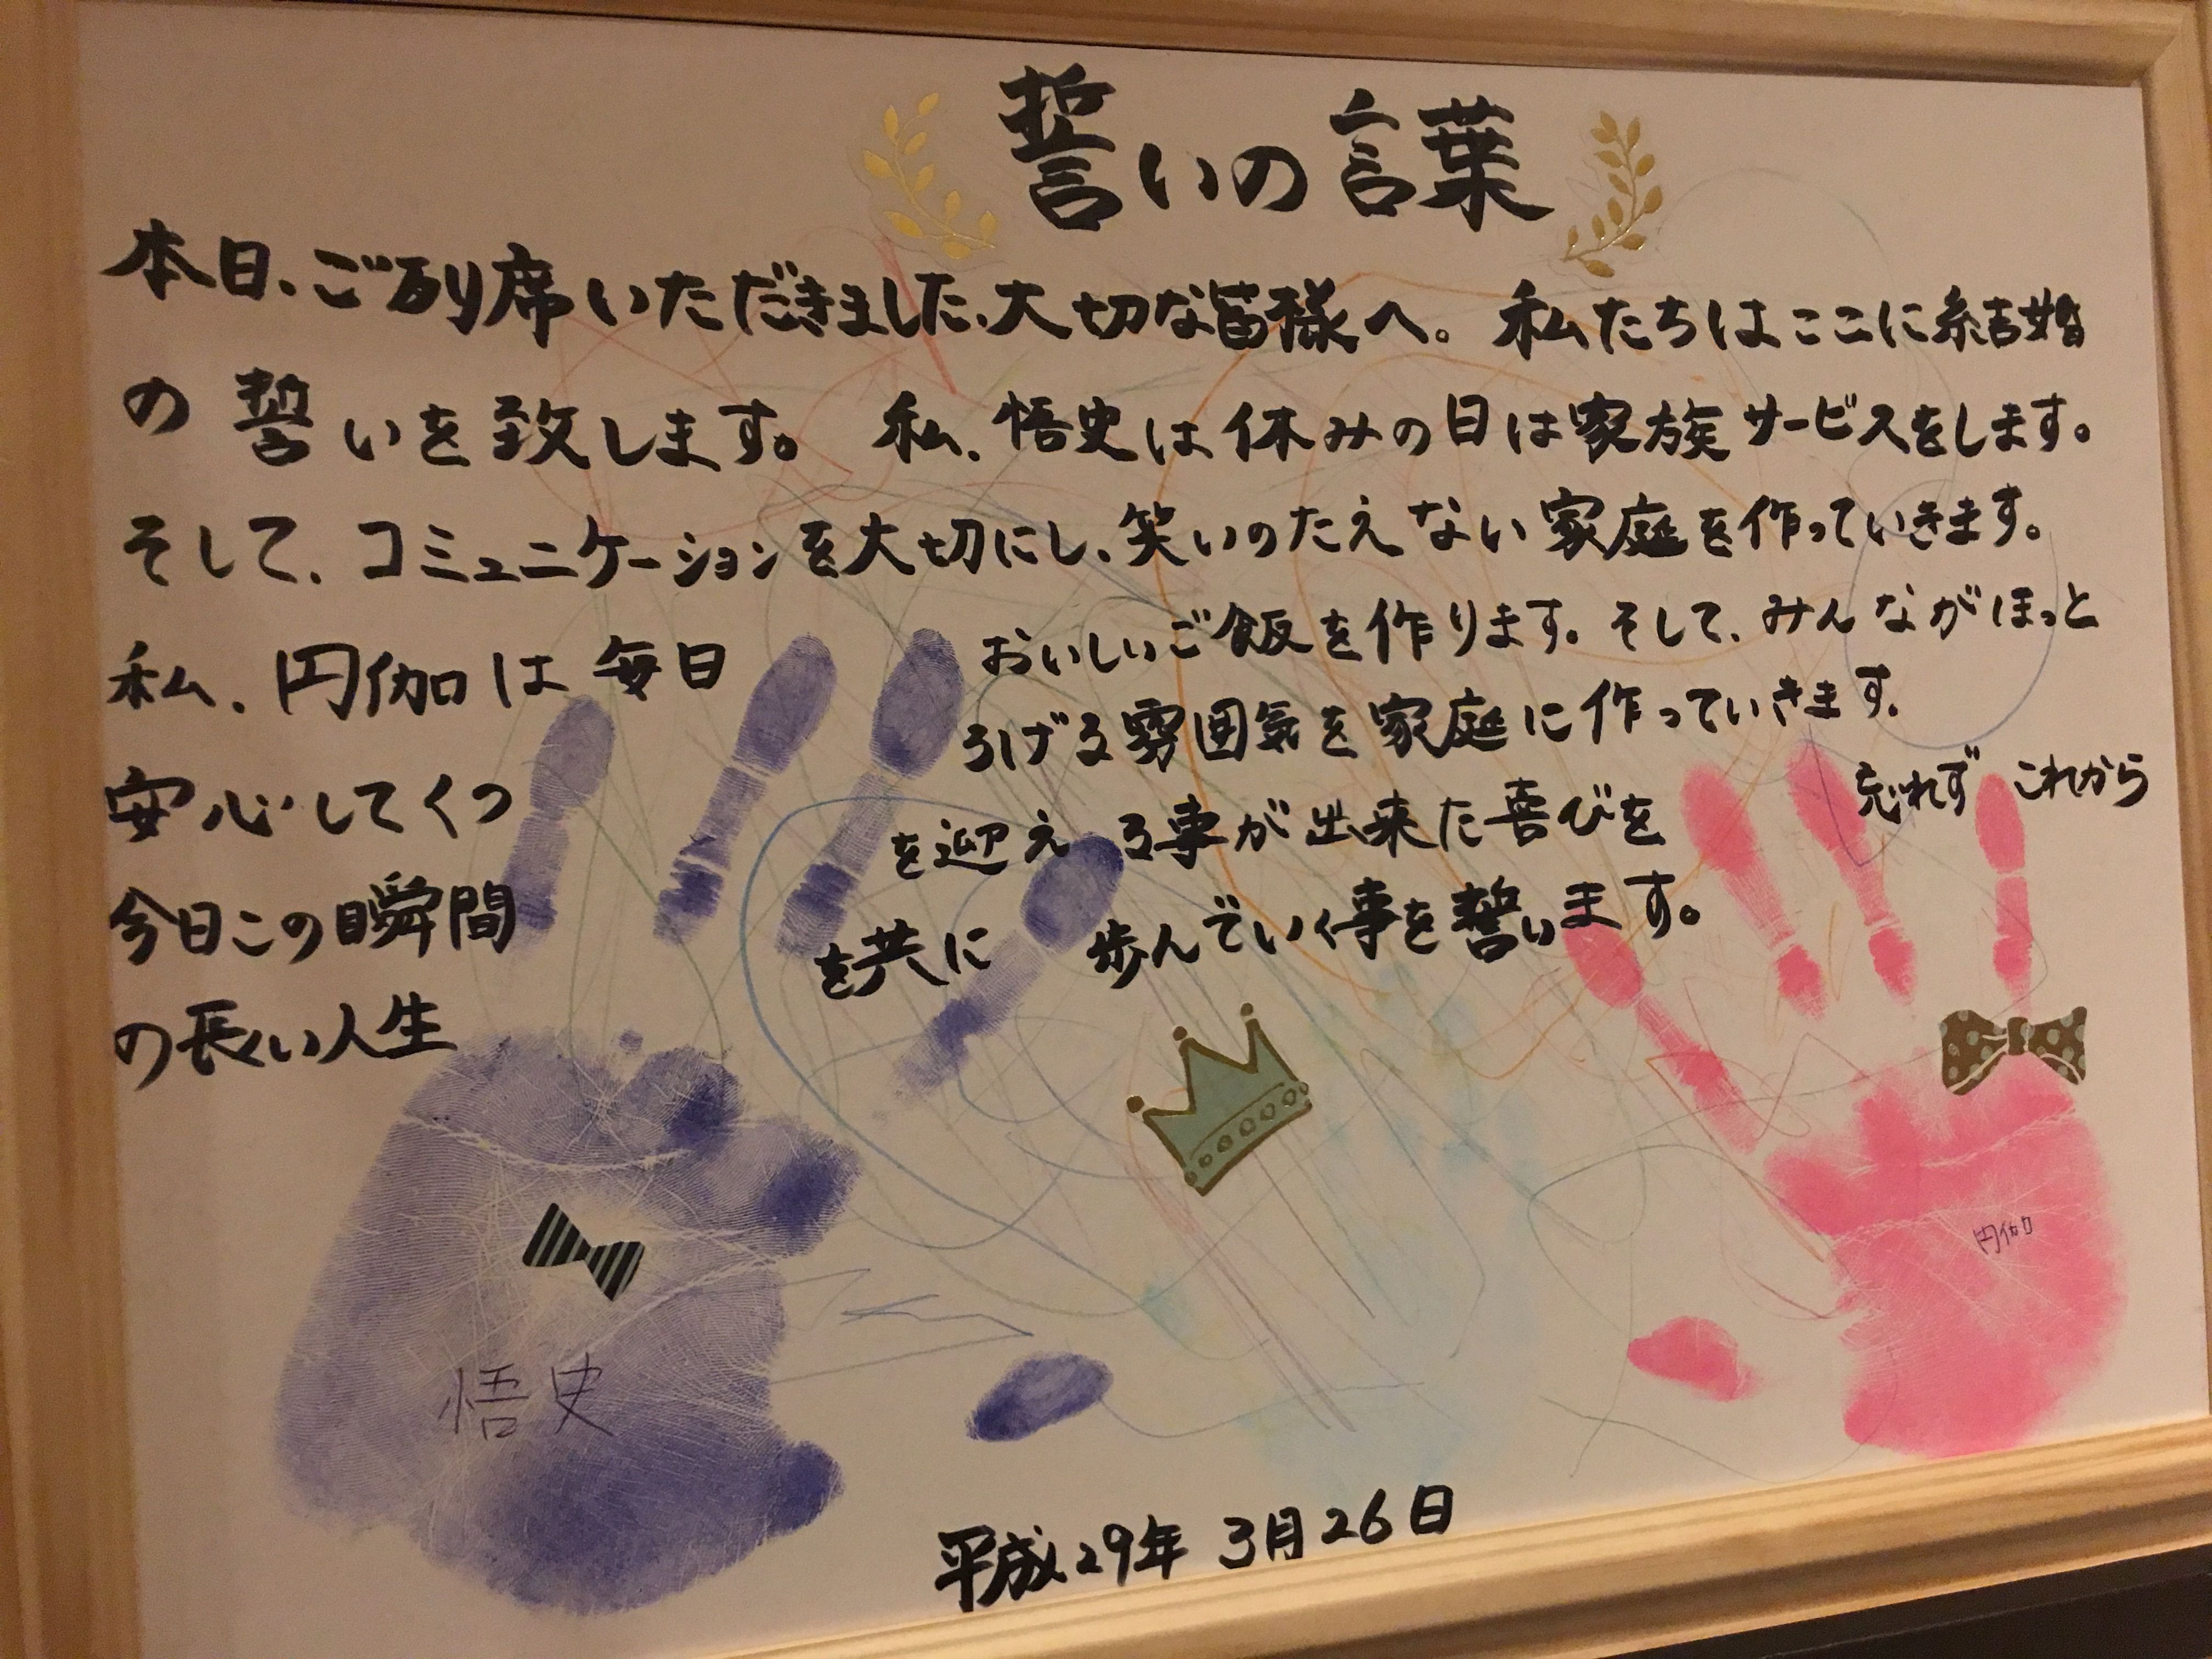 誓いの言葉
本日、ご列席いただきました、大切な皆様へ。 私たちはここに結婚
の誓いを致します。 私、悟史は休みの日は家族サービスをします。
そして、コミュニケーションを大切にし、笑いのたえない家庭を作っていきます。
私、円伽は毎日おいしいご飯を作ります。そして、みんながほっと
安心してくつろげる雰囲気を家庭に作っていきます。
今日この瞬間を迎える事が出来た喜びを忘れずこれから
の長い人生を共に歩んでいく事を誓います。
悟史
円伽
平成29年 3月26日